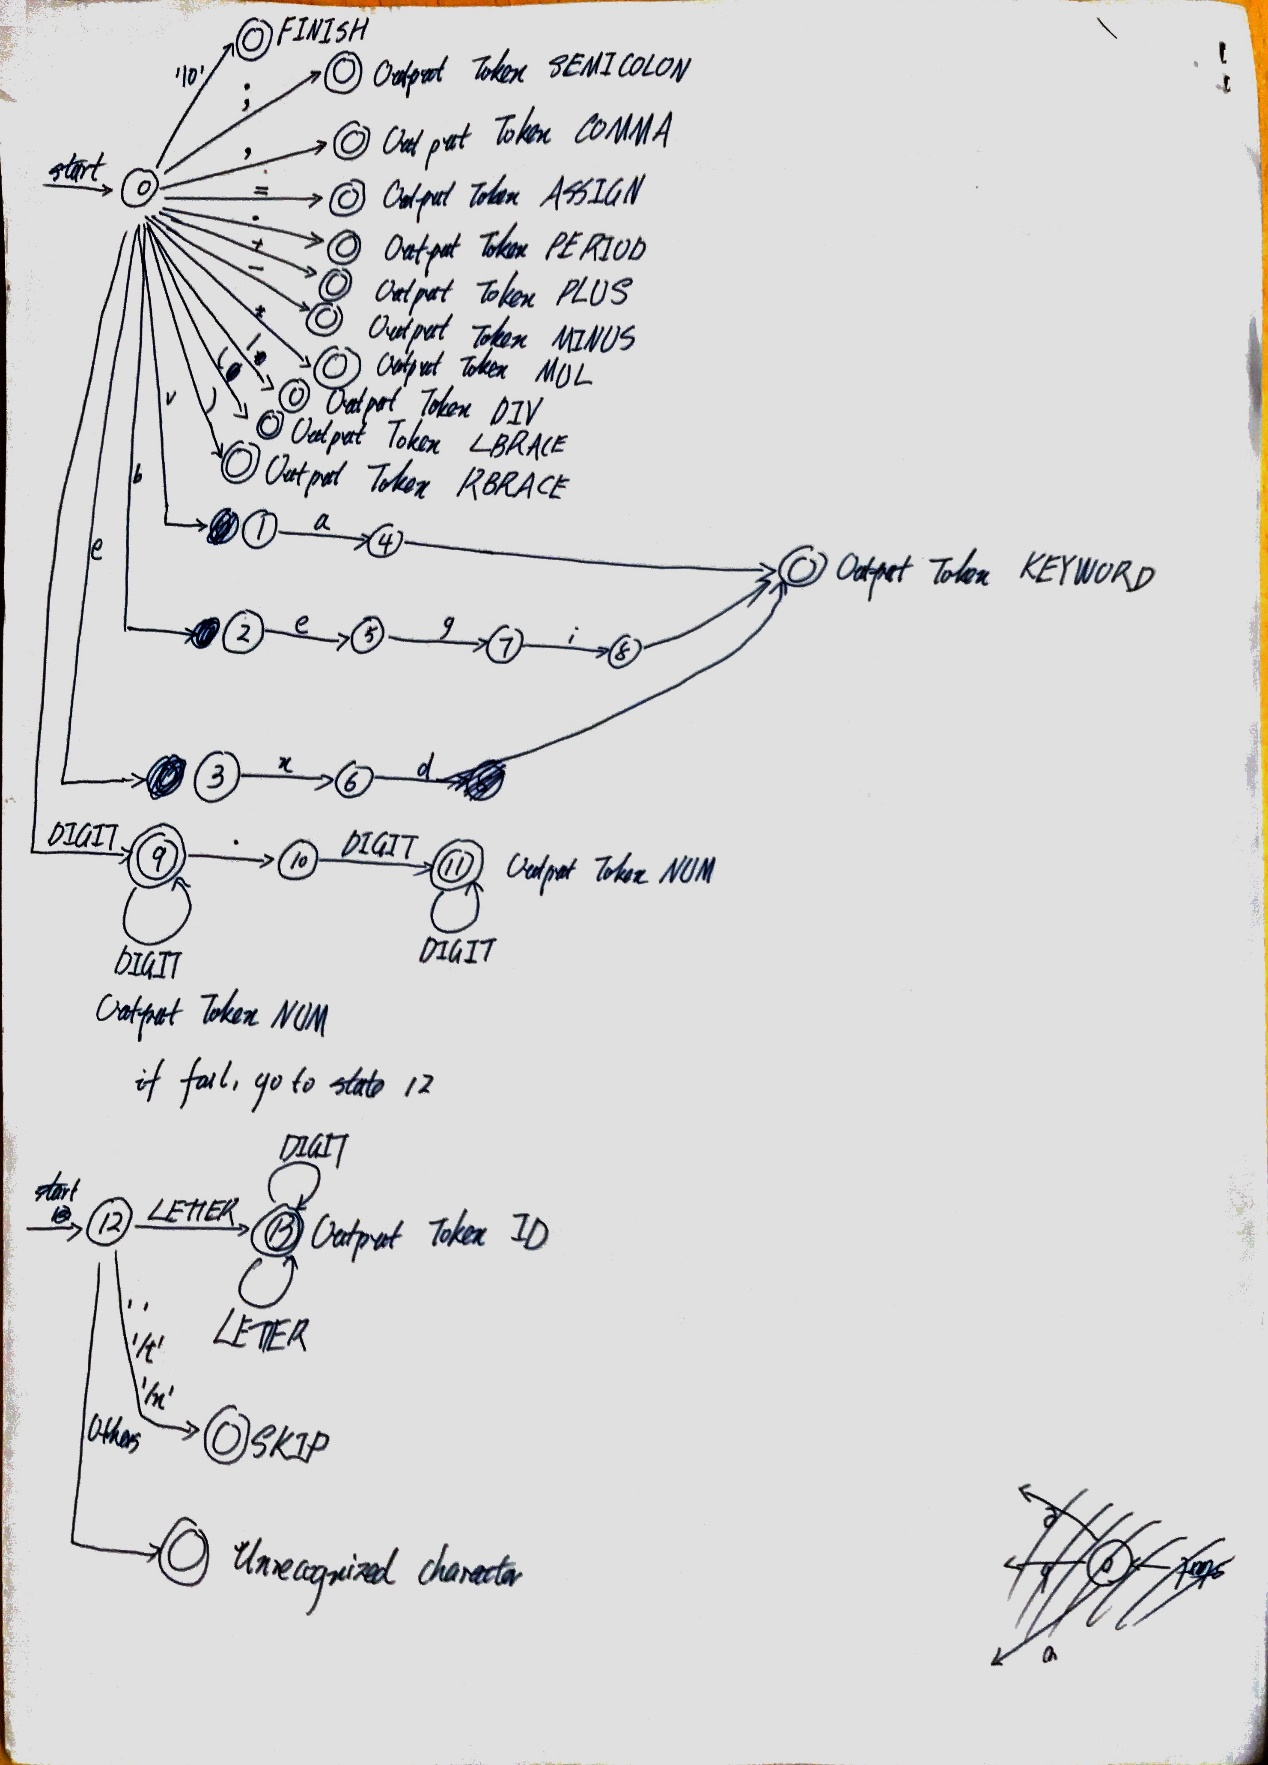 '\0' FINISH
; Output Token SEMICOLON
, Output Token COMMA
start 0 = Output Token ASSIGN
. Output Token PERIOD
+ Output Token PLUS
- Output Token MINUS
* Output Token MUL
/ Output Token DIV
( Output Token LBRACE
) Output Token RBRACE
v 1 a 4 Output Token KEYWORD
b 2 e 5 g 7 i 8
e 3 n 6 d
DIGIT 9 . 10 DIGIT 11 Output Token NUM
DIGIT DIGIT
Output Token NUM
if fail, go to state 12
DIGIT
start 12 LETTER 13 Output Token ID
LETTER
' '
'/t'
'/n'
Others SKIP
Unrecognized character
a